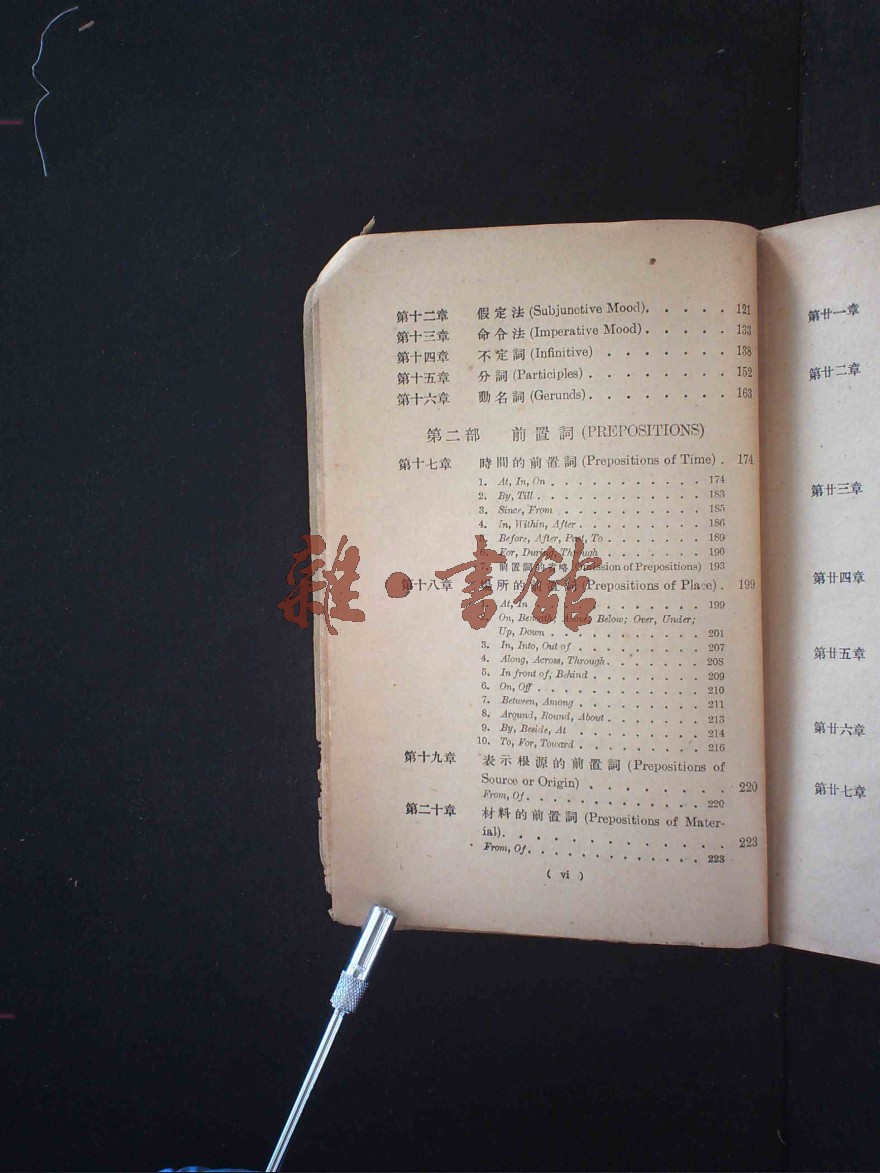 第十二章 假定法 (Subjunctive Mood). . . . . . 121
第十三章 命令法 (Imperative Mood). . . . . . 133
第十四章 不定詞 (Infinitive) . . . . . . . 138
第十五章 分詞 (Participles) . . . . . . . . 152
第十六章 動名詞 (Gerunds). . . . . . . . 163
第二部 前置詞 (PREPOSITIONS)
第十七章 時間的前置詞 (Prepositions of Time) . 174
1. At, In, On . . . . . . . . . . . 174
2. By, Till . . . . . . . . . . . . 183
3. Since, From . . . . . . . . . . 185
4. In, Within, After . . . . . . . . . 186
5. Before, After, Past, To . . . . . . . 189
6. For, During, Through . . . . . . . 190
7. 前置詞的省略 (Omission of Prepositions) 193
第十八章 場所的前置詞 (Prepositions of Place) . 199
1. At, In . . . . . . . . . . . . 199
2. On, Beneath; Above, Below; Over, Under;
Up, Down . . . . . . . . . . . 201
3. In, Into, Out of . . . . . . . . . 207
4. Along, Across, Through . . . . . . . 208
5. In front of, Behind . . . . . . . . 209
6. On, Off . . . . . . . . . . . . 210
7. Between, Among . . . . . . . . . 211
8. Around, Round, About . . . . . . . 213
9. By, Beside, At . . . . . . . . . 214
10. To, For, Toward . . . . . . . . . 216
第十九章 表示根源的前置詞 (Prepositions of
Source or Origin) . . . . . . . . 220
From, Of . . . . . . . . . . . . 220
第二十章 材料的前置詞 (Prepositions of Mater-
ial). . . . . . . . . . . . . 223
From, Of . . . . . . . . . . . . 223
( vi )
第廿一章
第廿二章
第廿三章
第廿四章
第廿五章
第廿六章
第廿七章
雜·書館